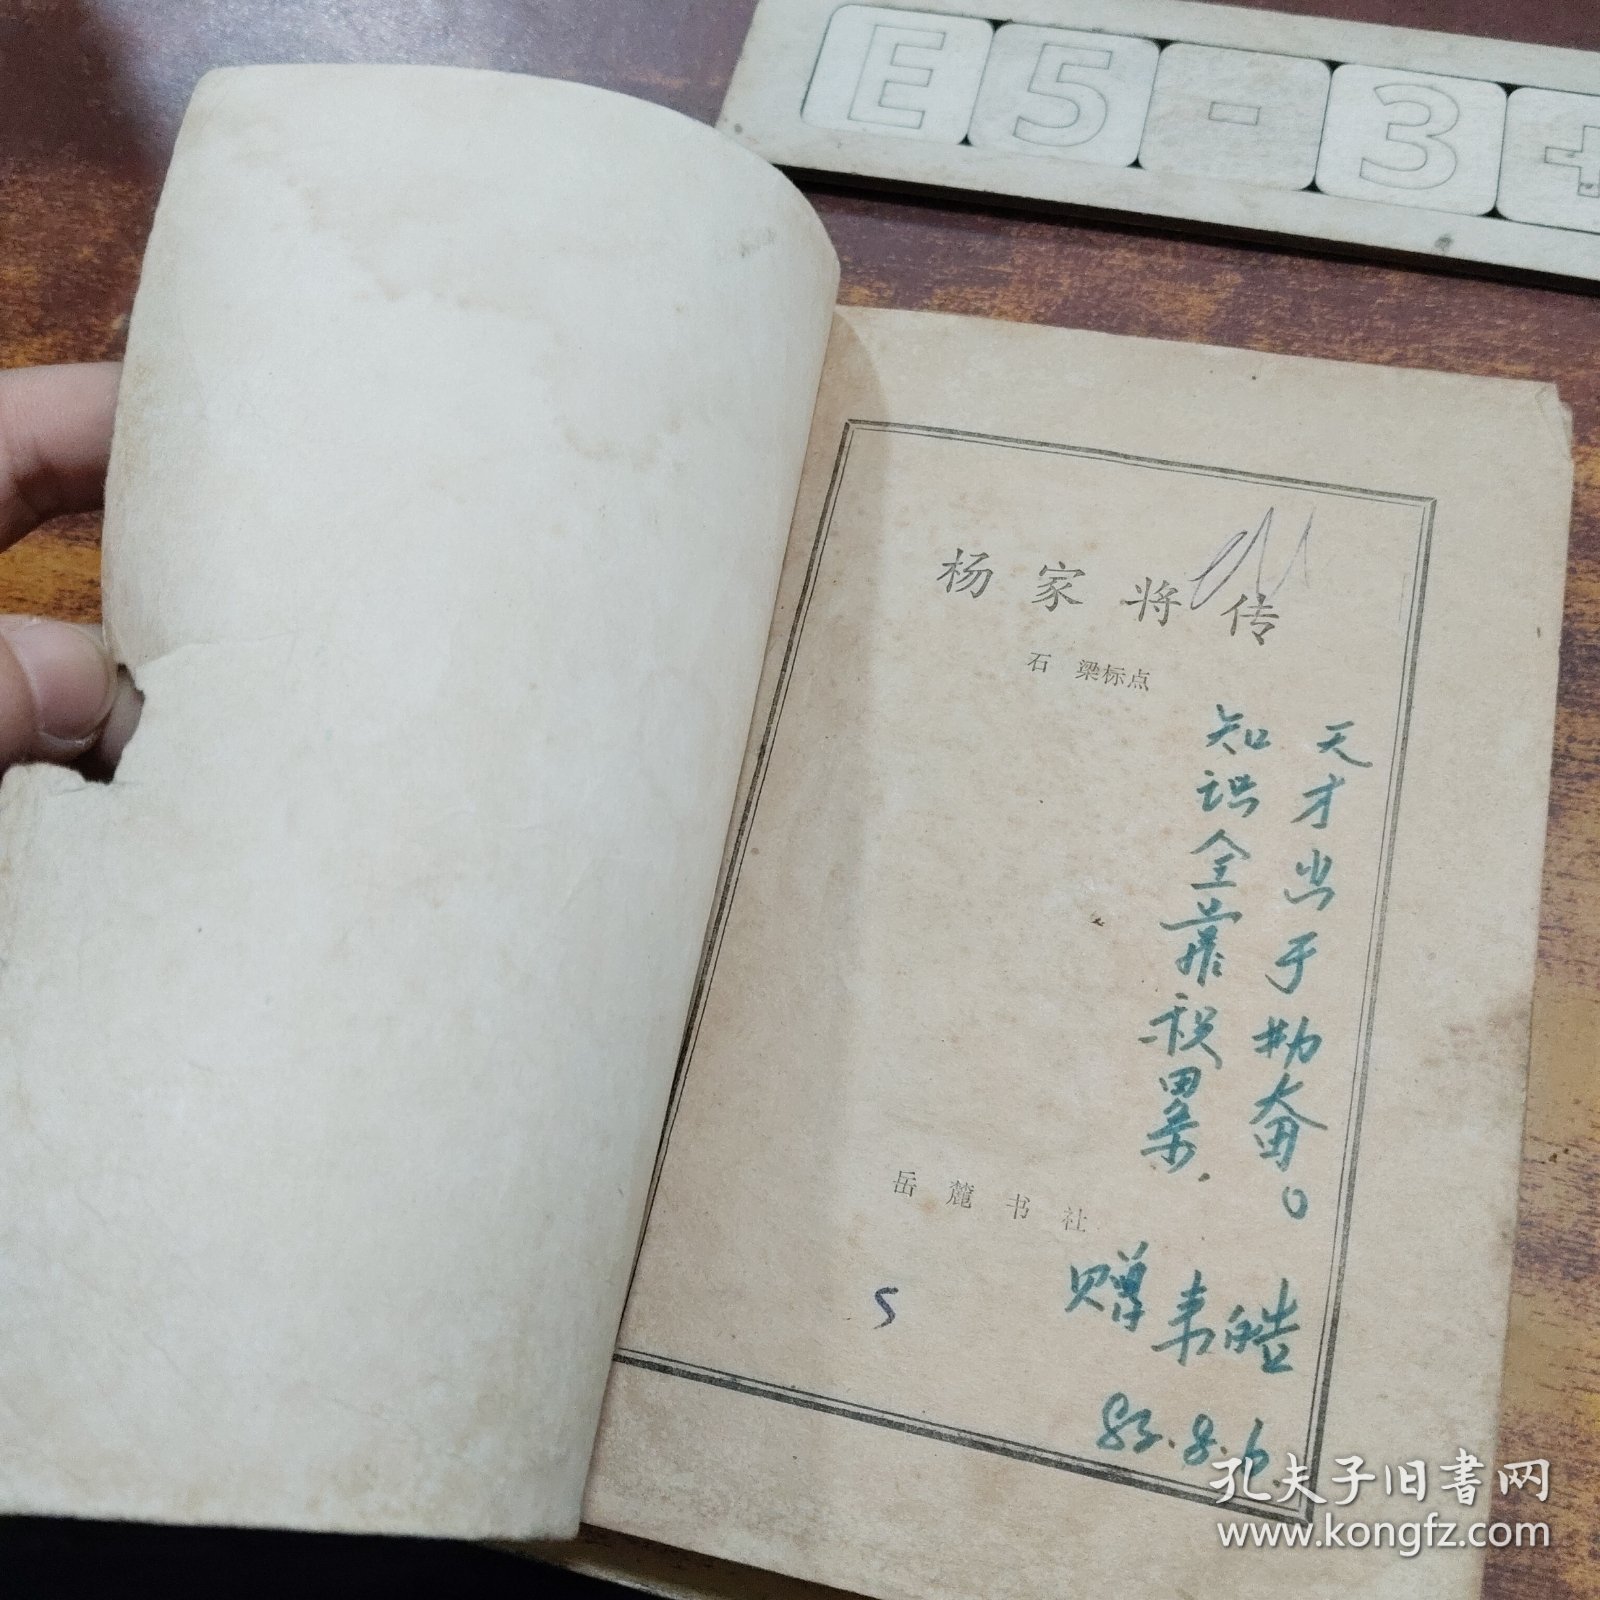 E5-3+
杨家将传
石 梁标点
天才出于勤奋。
知识全靠积累.
岳麓书社
赠韦皓
83.8.6
5
孔夫子旧书网
www.kongfz.com